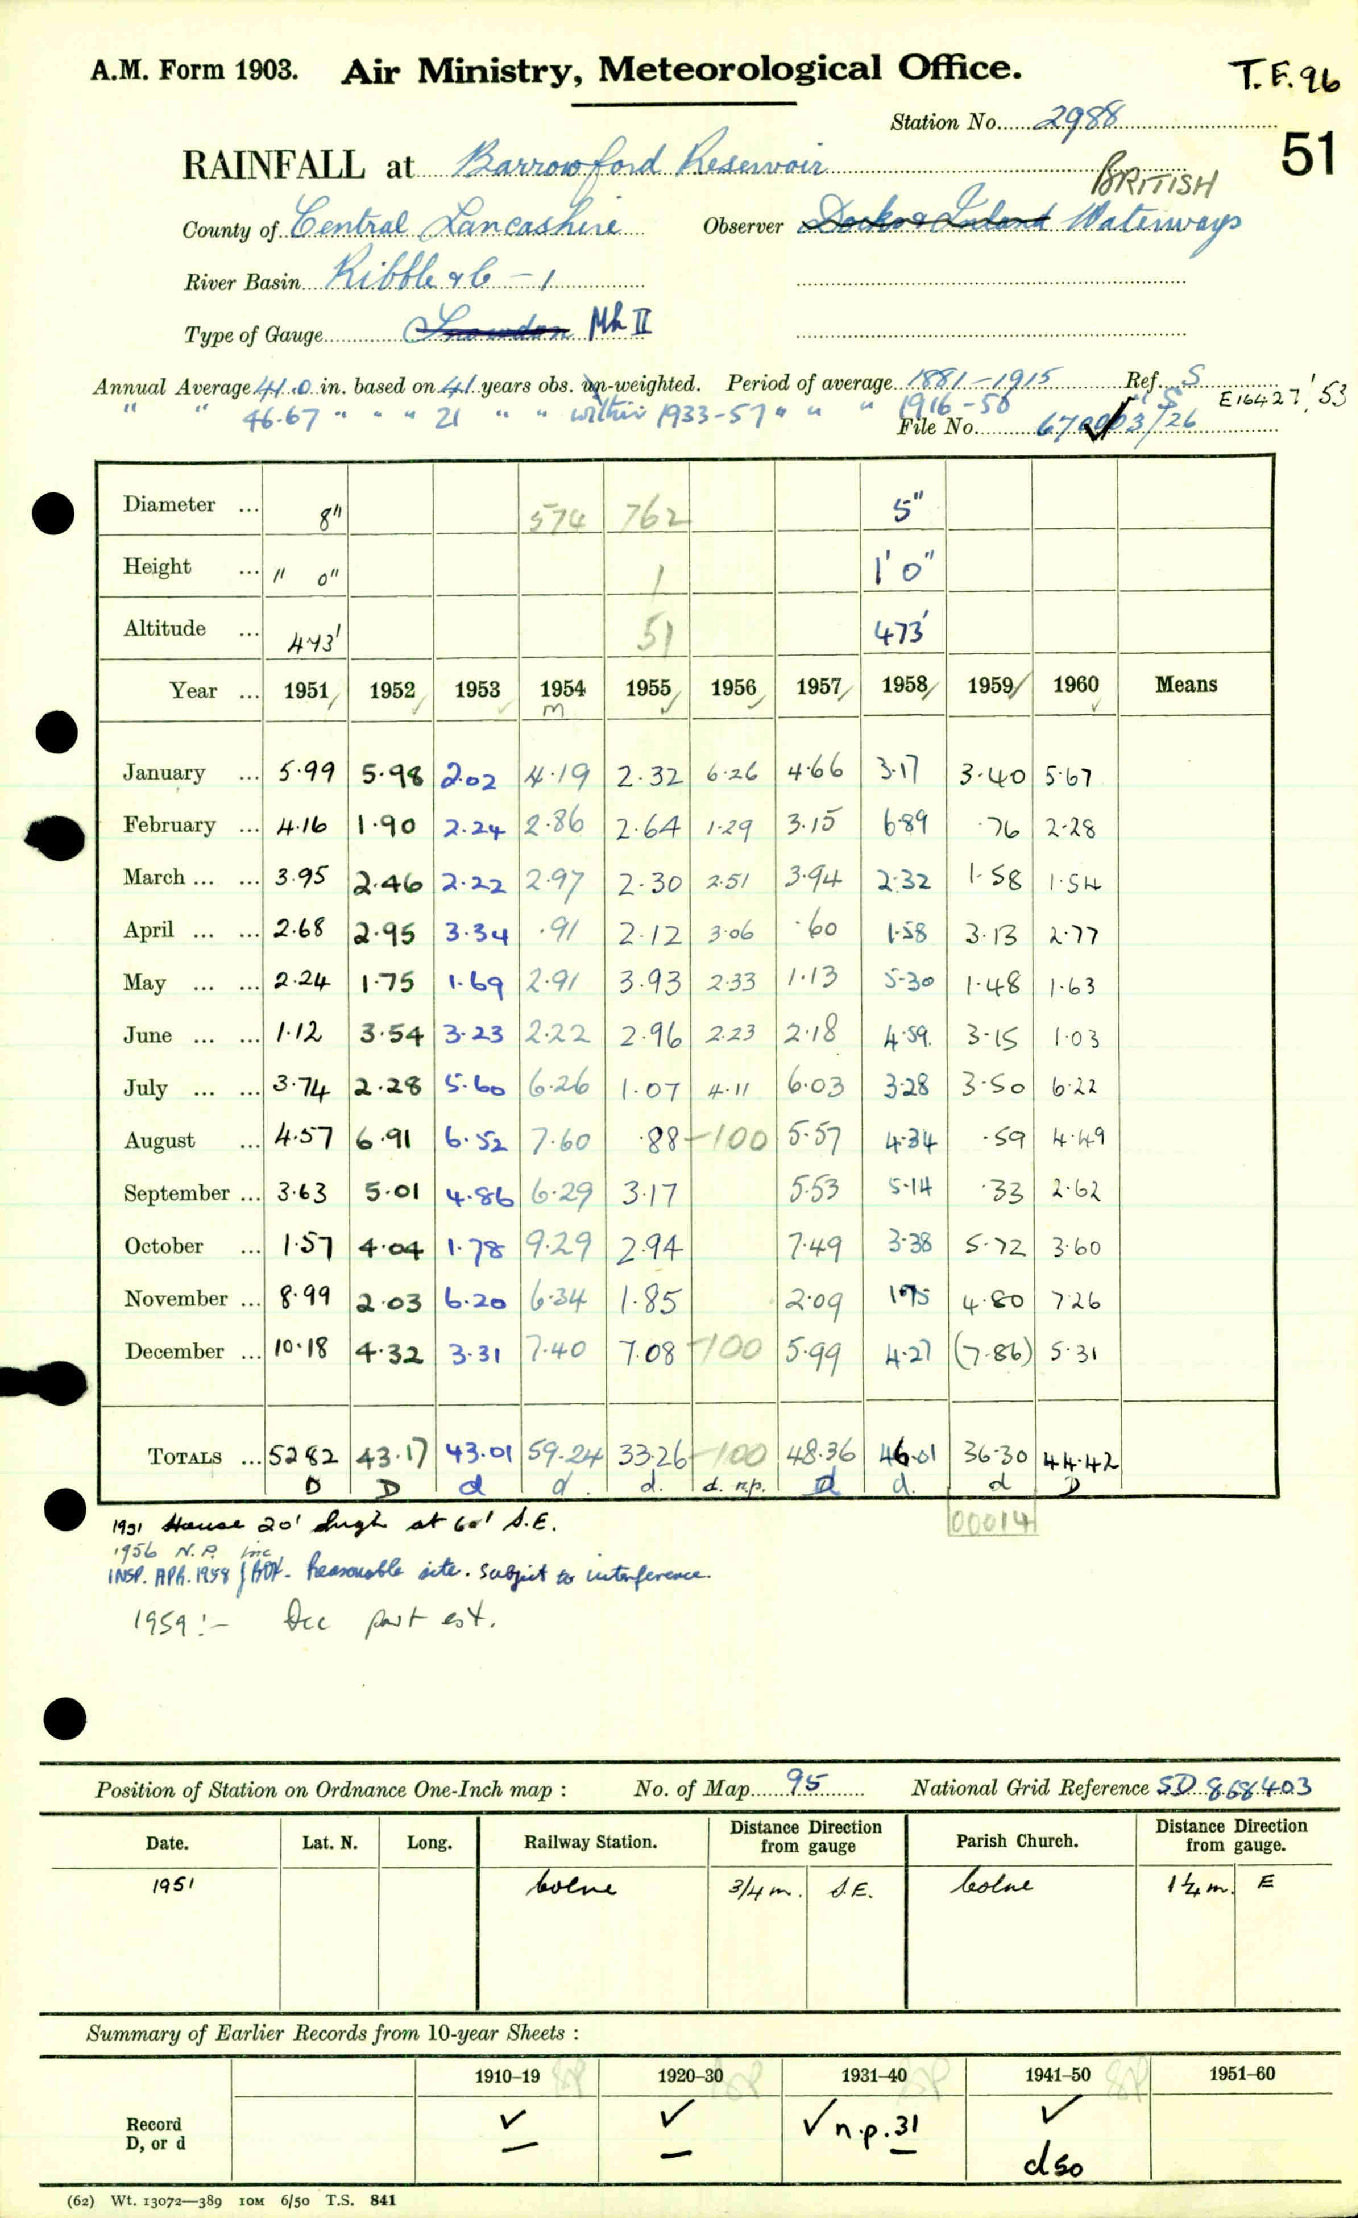 A.M. Form 1903. Air Ministry, Meteorological Office. T.F. 96
Station No. 2988
51
RAINFALL at Barrowford Reservoir
BRITISH
County of Central Lancashire Observer Docks & Inland Waterways
River Basin Ribble & C - 1
Type of Gauge Snowdon Mk II
Annual Average 41.0 in. based on 41 years obs. un-weighted. Period of average 1881-1915 Ref. S
" " 46.67 " " " 21 " " within 1933-57 " " " 1916-50 " S E16427/53
File No. 670003/26
Diameter ... 8" 574 762 5"
Height ... 1' 0" 1 1' 0"
Altitude ... 473' 51 473'
Year ... 1951 1952 1953 1954 1955 1956 1957 1958 1959 1960 Means
m
January ... 5.99 5.98 2.02 4.19 2.32 6.26 4.66 3.17 3.40 5.67
February ... 4.16 1.90 2.24 2.86 2.64 1.29 3.15 6.89 .76 2.28
March ... ... 3.95 2.46 2.22 2.97 2.30 2.51 3.94 2.32 1.58 1.54
April ... ... 2.68 2.95 3.34 .91 2.12 3.06 .60 1.58 3.13 2.77
May ... ... 2.24 1.75 1.69 2.91 3.93 2.33 1.13 5.30 1.48 1.63
June ... ... 1.12 3.54 3.23 2.22 2.96 2.23 2.18 4.59 3.15 1.03
July ... ... 3.74 2.28 5.60 6.26 1.07 4.11 6.03 3.28 3.50 6.22
August ... 4.57 6.91 6.52 7.60 .88 -100 5.57 4.34 .59 4.49
September ... 3.63 5.01 4.86 6.29 3.17 5.53 5.14 .33 2.62
October ... 1.57 4.04 1.78 9.29 2.94 7.49 3.38 5.72 3.60
November ... 8.99 2.03 6.20 6.34 1.85 2.09 1.75 4.80 7.26
December ... 10.18 4.32 3.31 7.40 7.08 -100 5.99 4.27 (7.86) 5.31
TOTALS ... 52 82 43.17 43.01 59.24 33.26 -100 48.36 46.01 36.30 44.42
D D d d. d. d. n.p. d d. d D
00014
1951 House 20' high at 60' S.E.
1956 N.P. inc
INSP. APR. 1958 Reasonable site. Subject to interference.
1959:- Dec part est.
Position of Station on Ordnance One-Inch map : No. of Map 95 National Grid Reference SD 868403
Date. Lat. N. Long. Railway Station. Distance Direction from gauge Parish Church. Distance Direction from gauge.
1951 Colne 3/4 m. S.E. Colne 1 1/4 m. E
Summary of Earlier Records from 10-year Sheets :
1910–19 1920–30 1931–40 1941–50 1951–60
Record
D, or d
✓ ✓ ✓ n.p. 31 ✓
d50
(62) Wt. 13072—389 10M 6/50 T.S. 841